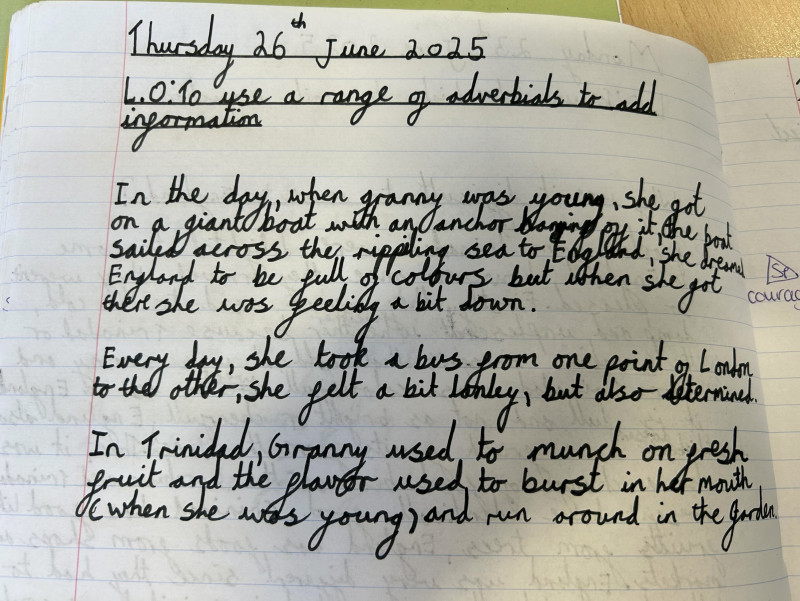 Thursday 26th June 2025
L.O: To use a range of adverbials to add
information
In the day, when granny was young, she got
on a giant boat with an anchor by it, the boat
sailed across the rippling sea to England, she dreamed
England to be full of colours but when she got
there she was feeling a bit down.
Every day, she took a bus from one point of London
to the other, she felt a bit lonley, but also determined.
In Trinidad, Granny used to munch on fresh
fruit and the flavor used to burst in her mouth
(when she was young) and run around in the garden.
Sp
courag